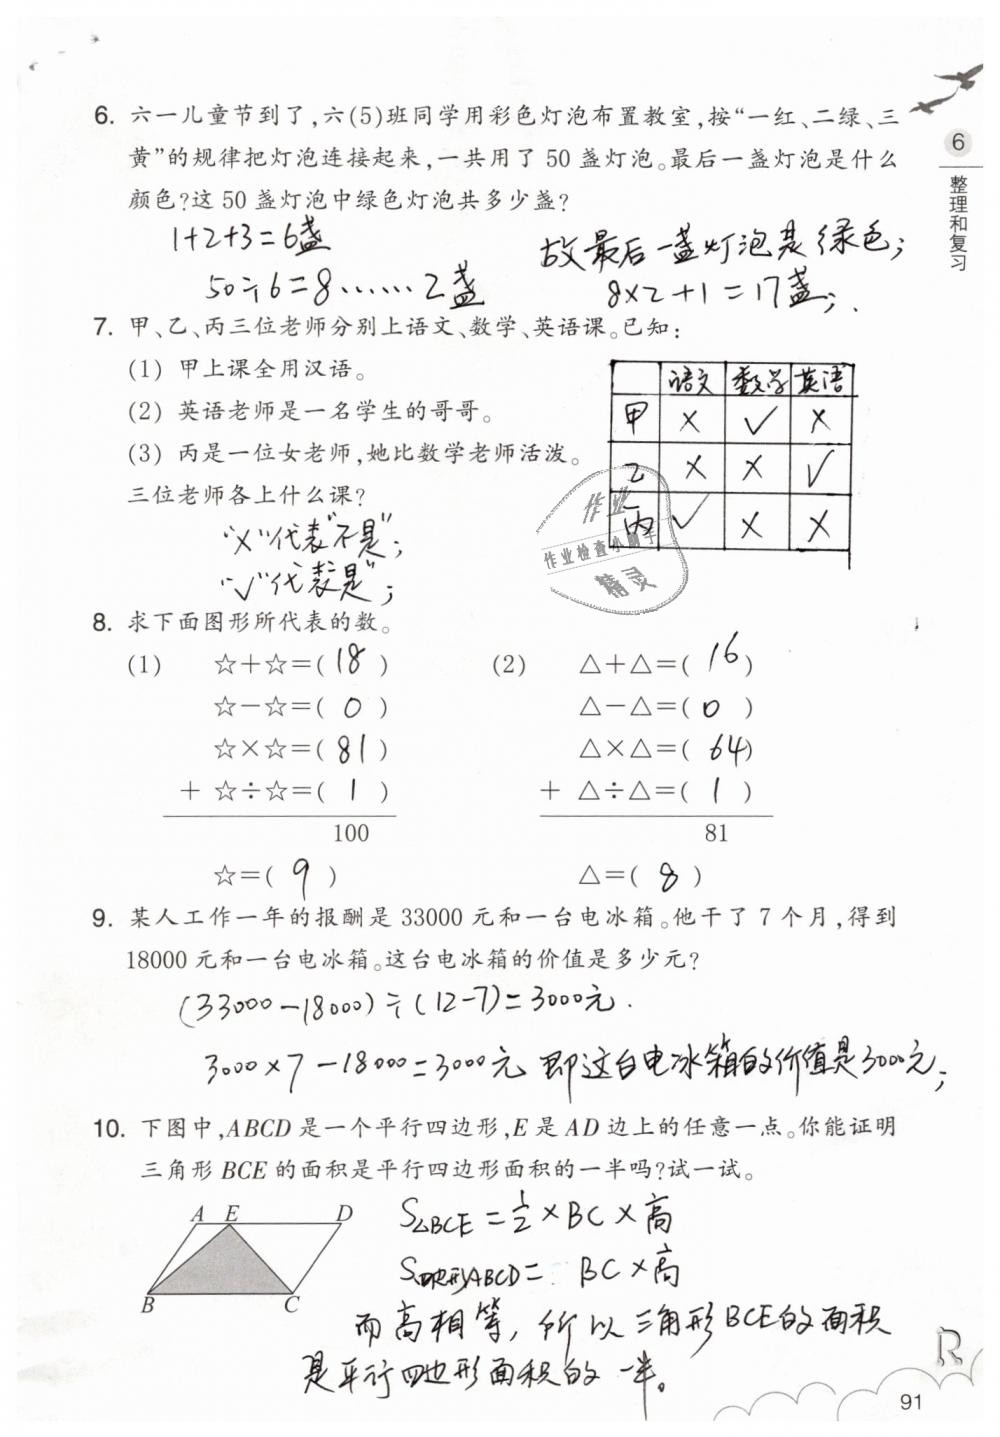 6. 六一儿童节到了,六(5)班同学用彩色灯泡布置教室,按“一红、二绿、三
黄”的规律把灯泡连接起来,一共用了 50 盏灯泡。最后一盏灯泡是什么
颜色?这 50 盏灯泡中绿色灯泡共多少盏?
1+2+3=6盏
故最后一盏灯泡是绿色;
50÷6=8……2盏
8×2+1=17盏;
7. 甲、乙、丙三位老师分别上语文、数学、英语课。已知:
(1) 甲上课全用汉语。
(2) 英语老师是一名学生的哥哥。
(3) 丙是一位女老师,她比数学老师活泼。
三位老师各上什么课?
语文 数学 英语
甲 × √ ×
乙 × × √
丙 √ × ×
“×”代表“不是”;
“√”代表“是”;
作业
作业检查小助手
精灵
8. 求下面图形所代表的数。
(1) ☆+☆=( 18 )
☆-☆=( 0 )
☆×☆=( 81 )
+ ☆÷☆=( 1 )
100
☆=( 9 )
(2) △+△=( 16 )
△-△=( 0 )
△×△=( 64 )
+ △÷△=( 1 )
81
△=( 8 )
9. 某人工作一年的报酬是 33000 元和一台电冰箱。他干了 7 个月,得到
18000 元和一台电冰箱。这台电冰箱的价值是多少元?
(33000-18000)÷(12-7)=3000元.
3000×7-18000=3000元 即这台电冰箱的价值是3000元;
10. 下图中,ABCD 是一个平行四边形,E 是 AD 边上的任意一点。你能证明
三角形 BCE 的面积是平行四边形面积的一半吗?试一试。
A E D
B C
S△BCE=1/2×BC×高
S四边形ABCD= BC×高
而高相等,所以三角形BCE的面积
是平行四边形面积的一半。
6
整理和复习
R
91